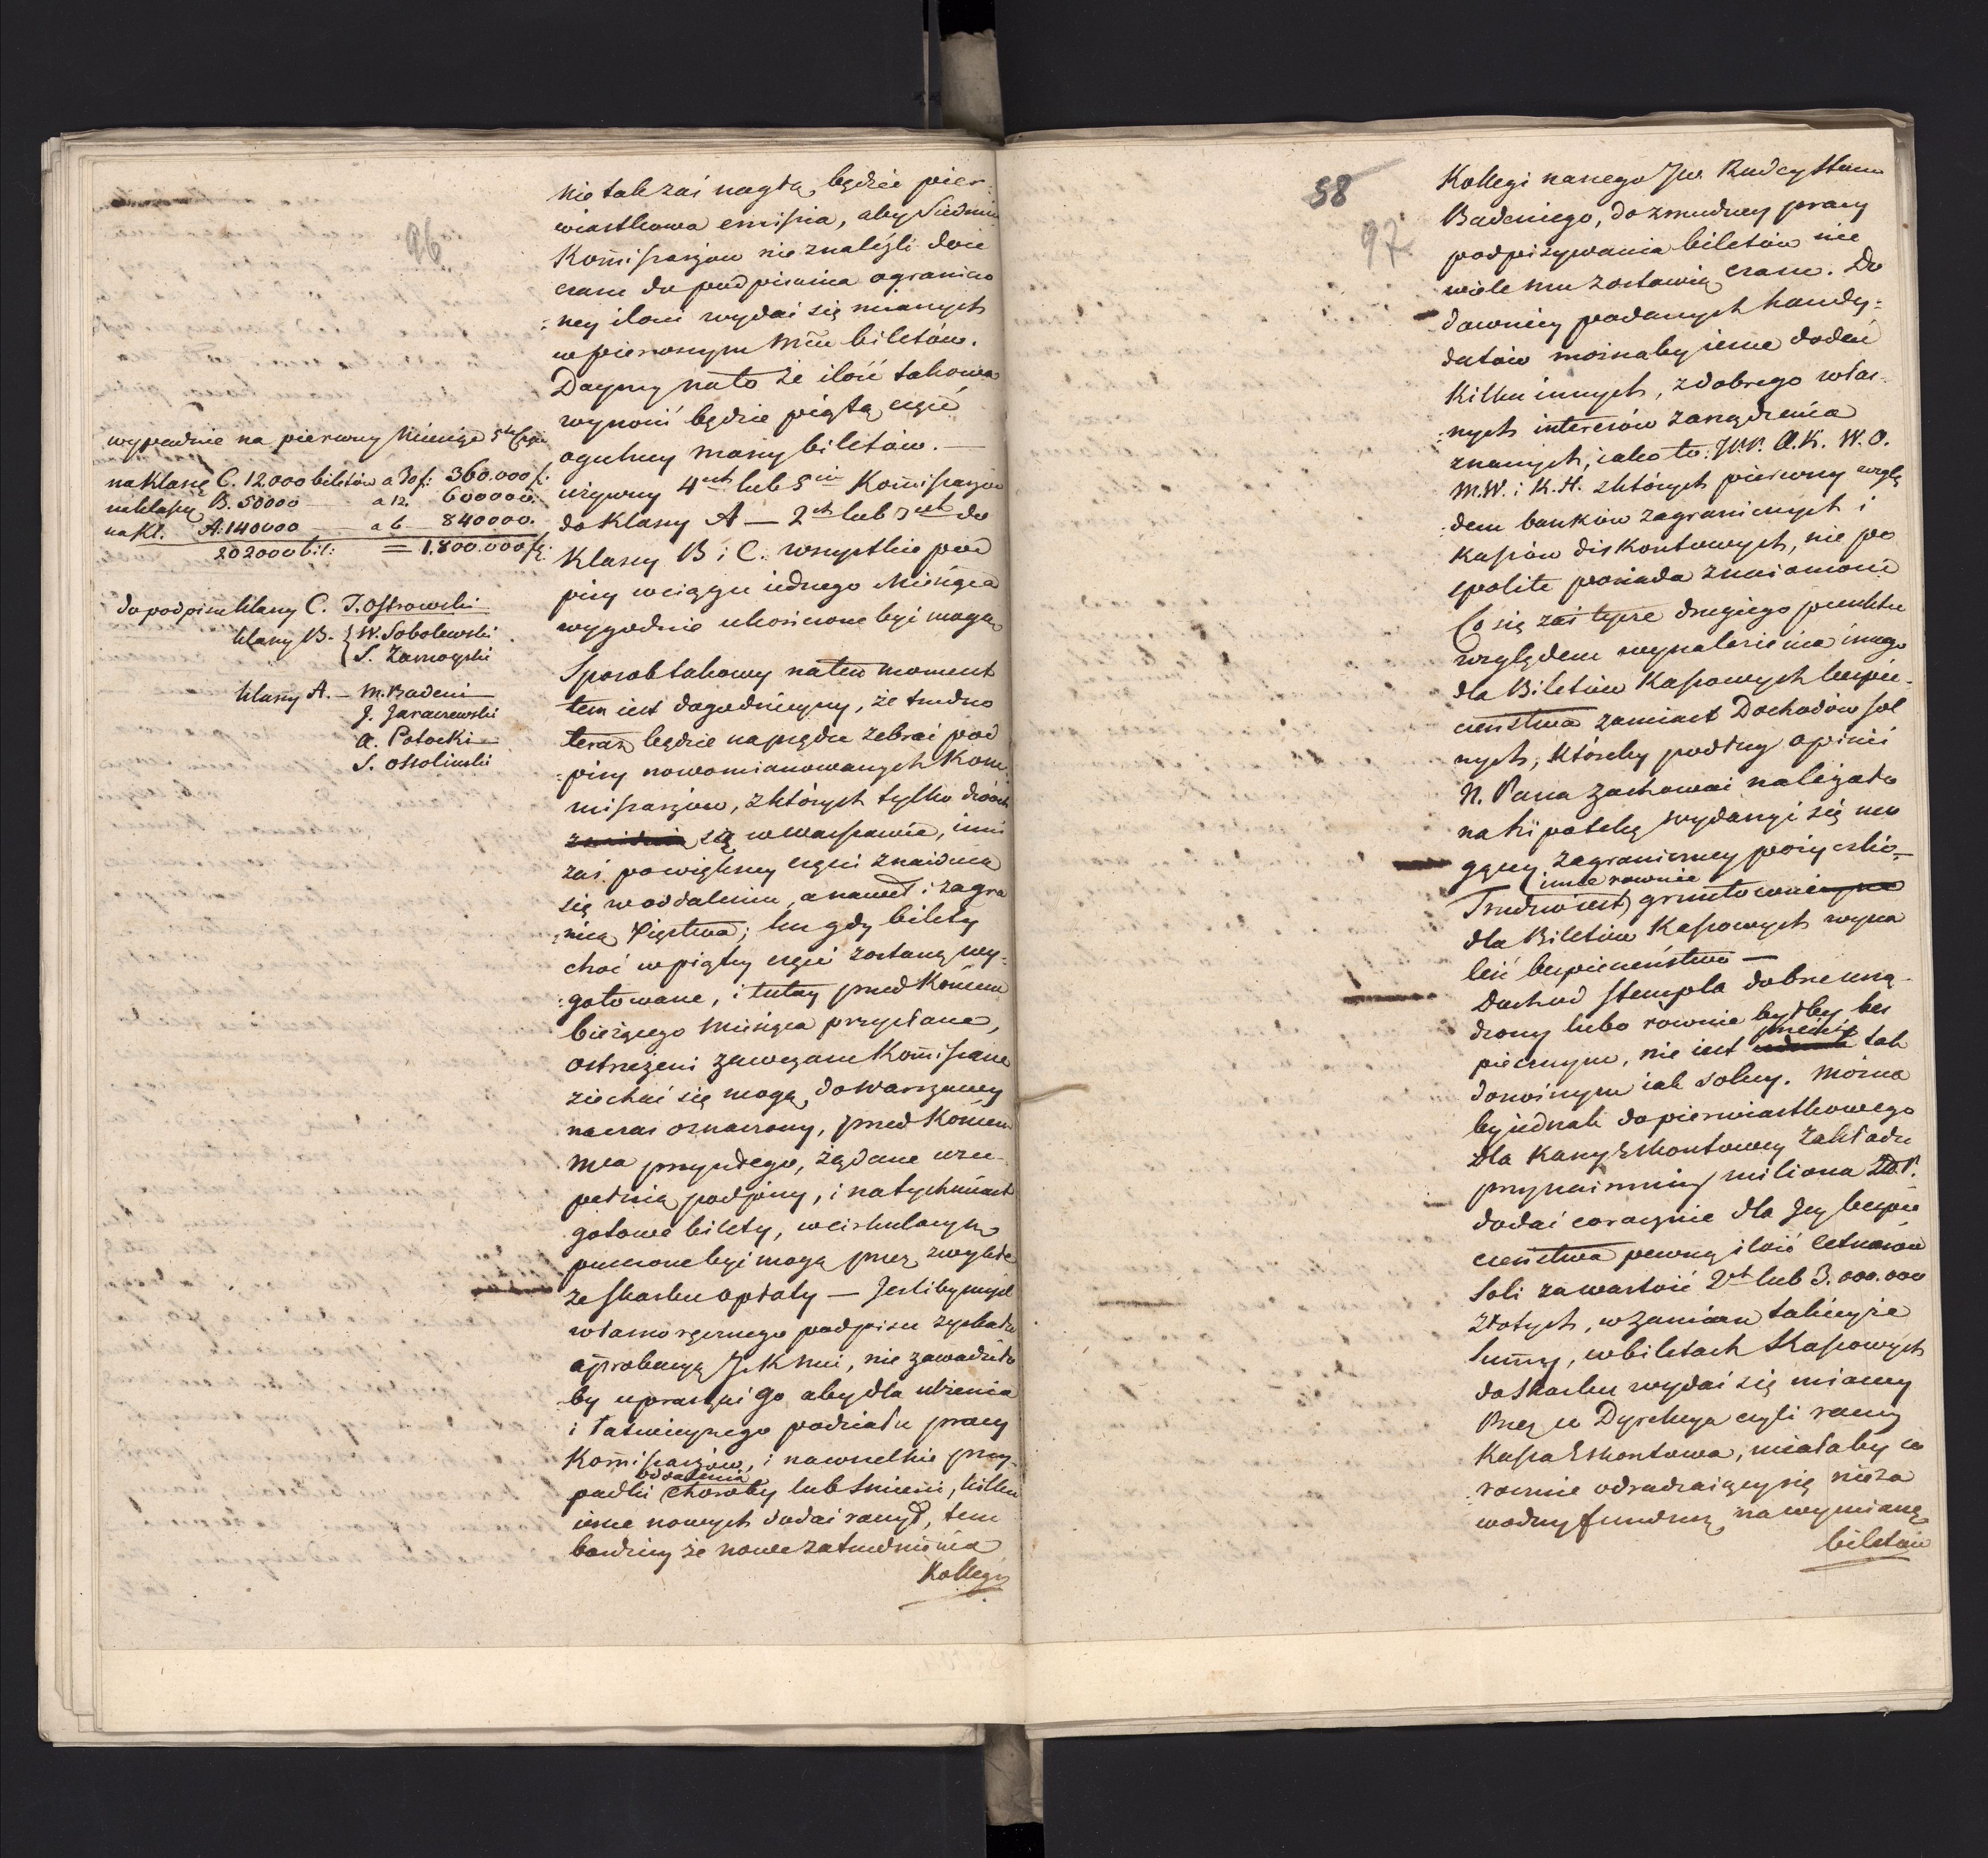 96.
wypadnie na pierwszy Miesiąc 5tą część
na Klassę C. 12.000 biletów a 30 f: 360.000 f:
na klassę B. 50000 — a 12. 600000.
na Kl. A. 140000 — a 6 — 840000.
202000 bil: = 1,800.000 f:
do podpisu klassy C. T. Ostrowski
klassy B. { W. Sobolewski
S. Zamoyski
klassy A. — M. Badeni
J. Jaraczewski
A. Potocki
S. Ossolinski
Nie tak zaś nagłą będzie pier-
wiastkowa emissia, aby Siedmiu
Kommissarzów nie znaleźli dość
czasu do podpisania ograniczo
:ney ilości wydać się maiących
w pierwszym Mcu biletów.
Daymy na to że ilość takowa
wynosić będzie piątą część
ogulney massy biletów. —
użyymy 4ech lub 5ciu Kommissarzów
do klassy A — 2ch lub 3ech do
Klassy B i C. wszystkie pod
pisy w ciągu iednego Miesiąca
wygodnie ukończone być mogą
Sposób takowy na ten moment
tem iest dogodnieyszy, że trudno
teraz będzie naprędce zebrać pod
:pisy nowomianowanych Kom
missarzów, z których tylko dwóch
są w Warszawie, inni
zaś po większey części znaiduią
się w oddaleniu, a nawet i zagra
:nicą Xięstwa; lecz gdy bilety
choć w piątey części zostaną wy-
:gotowane, i tutay przed Końcem
bieżącego Miesiąca przysłane,
ostrzeżeni zawczasu Kommissarze
ziechać się mogą do Warszawy
na czas oznaczony, przed Końcem
Mca przyszłego, żądane uzu-
pełnią podpisy, i natychmiast
gotowe bilety, w cirkulacyą
puszczone być mogą przez zwykłe
ze skarbu opłaty — Jeśliby myśl
własnoręcznego podpisu zyskała
approbacyą JKMci, nie zawadziło
by upraszać Go aby dla ulżenia
i łatwieyszego podziału pracy
Kommissarzów, i na wszelkie przy-
oddalenia
padki choroby lub śmierci, kilku
iesze nowych dodać raczył, tem
bardziey że nowe zatrudnienia
Kollegi
58
97
Kollegi naszego JW. Radcy Stanu
Badeniego, do zmudney pracy
podpisywania biletów nie
wiele mu zostawią czasu. Do
dawniey podanych kandy:
datów możnaby iesze dodać
Kilku innych, z dobrego włas-
:nych interesów zarządzenia
znanych, iako to: JW. A. K. W. O.
M. W. i K. H. z których pierwszy wzglę
:dem banków zagranicznych i
Kassów diskontowych, nie po
spolite posiada znaiomości
Co się zaś tycze drugiego punktu
względem wynalezienia innego
dla Biletów Kassowych bezpie-
czeństwa zamiast Dochodów sol
nych, któreby podług opinii
N. Pana zachować należało
na hipotekę wydarzyć się mo
gącey zagraniczney pożyczki —
inne rownie
Trudno iest gruntowne
dla Biletów Kassowych wyna
leść bezpieczeństwo —
Dochod stempla dobrze urzą-
dzony lubo rownie byłby bez
przecież
piecznym, nie iest tak
donośnym iak solny. Można
by iednak do pierwiastkowego
dla Kassy Eskontowey Zakładu
przynaimniey miliona Złp.
dodać corocznie dla Jey bezpie
czeństwa pewną ilość Cetnarów
Soli za wartość 2ch lub 3.000.000
Złotych, w zamian takieyże
Summy, w biletach Kassowych
do Skarbu wydać się maiącey
Przez co Dyrekcya czyli raczey
Kassa Eskontowa, miałaby co
:rocznie odradzaiący się nieza
wodny fundusz na wymianę
biletów